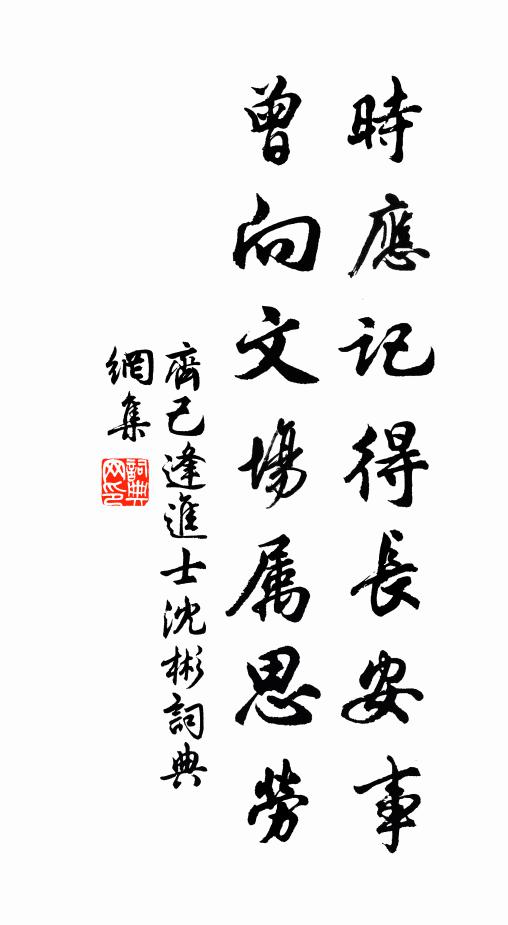 時應記得長安事
曾向文場属思勞
齊己逢進士沈彬詞典
網集
詞典網印